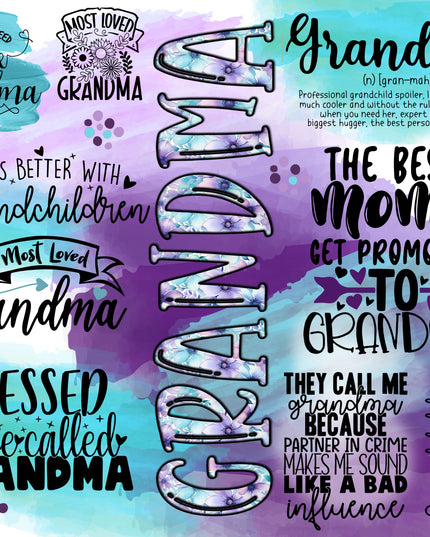 MOST LOVED
GRANDMA
S BETTER WITH
ndchildren
Most Loved
andma
ESSED
e called
ANDMA
GRANDMA
Grand
(n) [gran-mah
Professional grandchild spoiler, l
much cooler and without the rul
when you need her, expert
biggest hugger, the best perso
THE BES
MOM
GET PROMO
TO
GRAND
THEY CALL ME
grandma
BECAUSE
PARTNER IN CRIME
MAKES ME SOUND
LIKE A BAD
influence